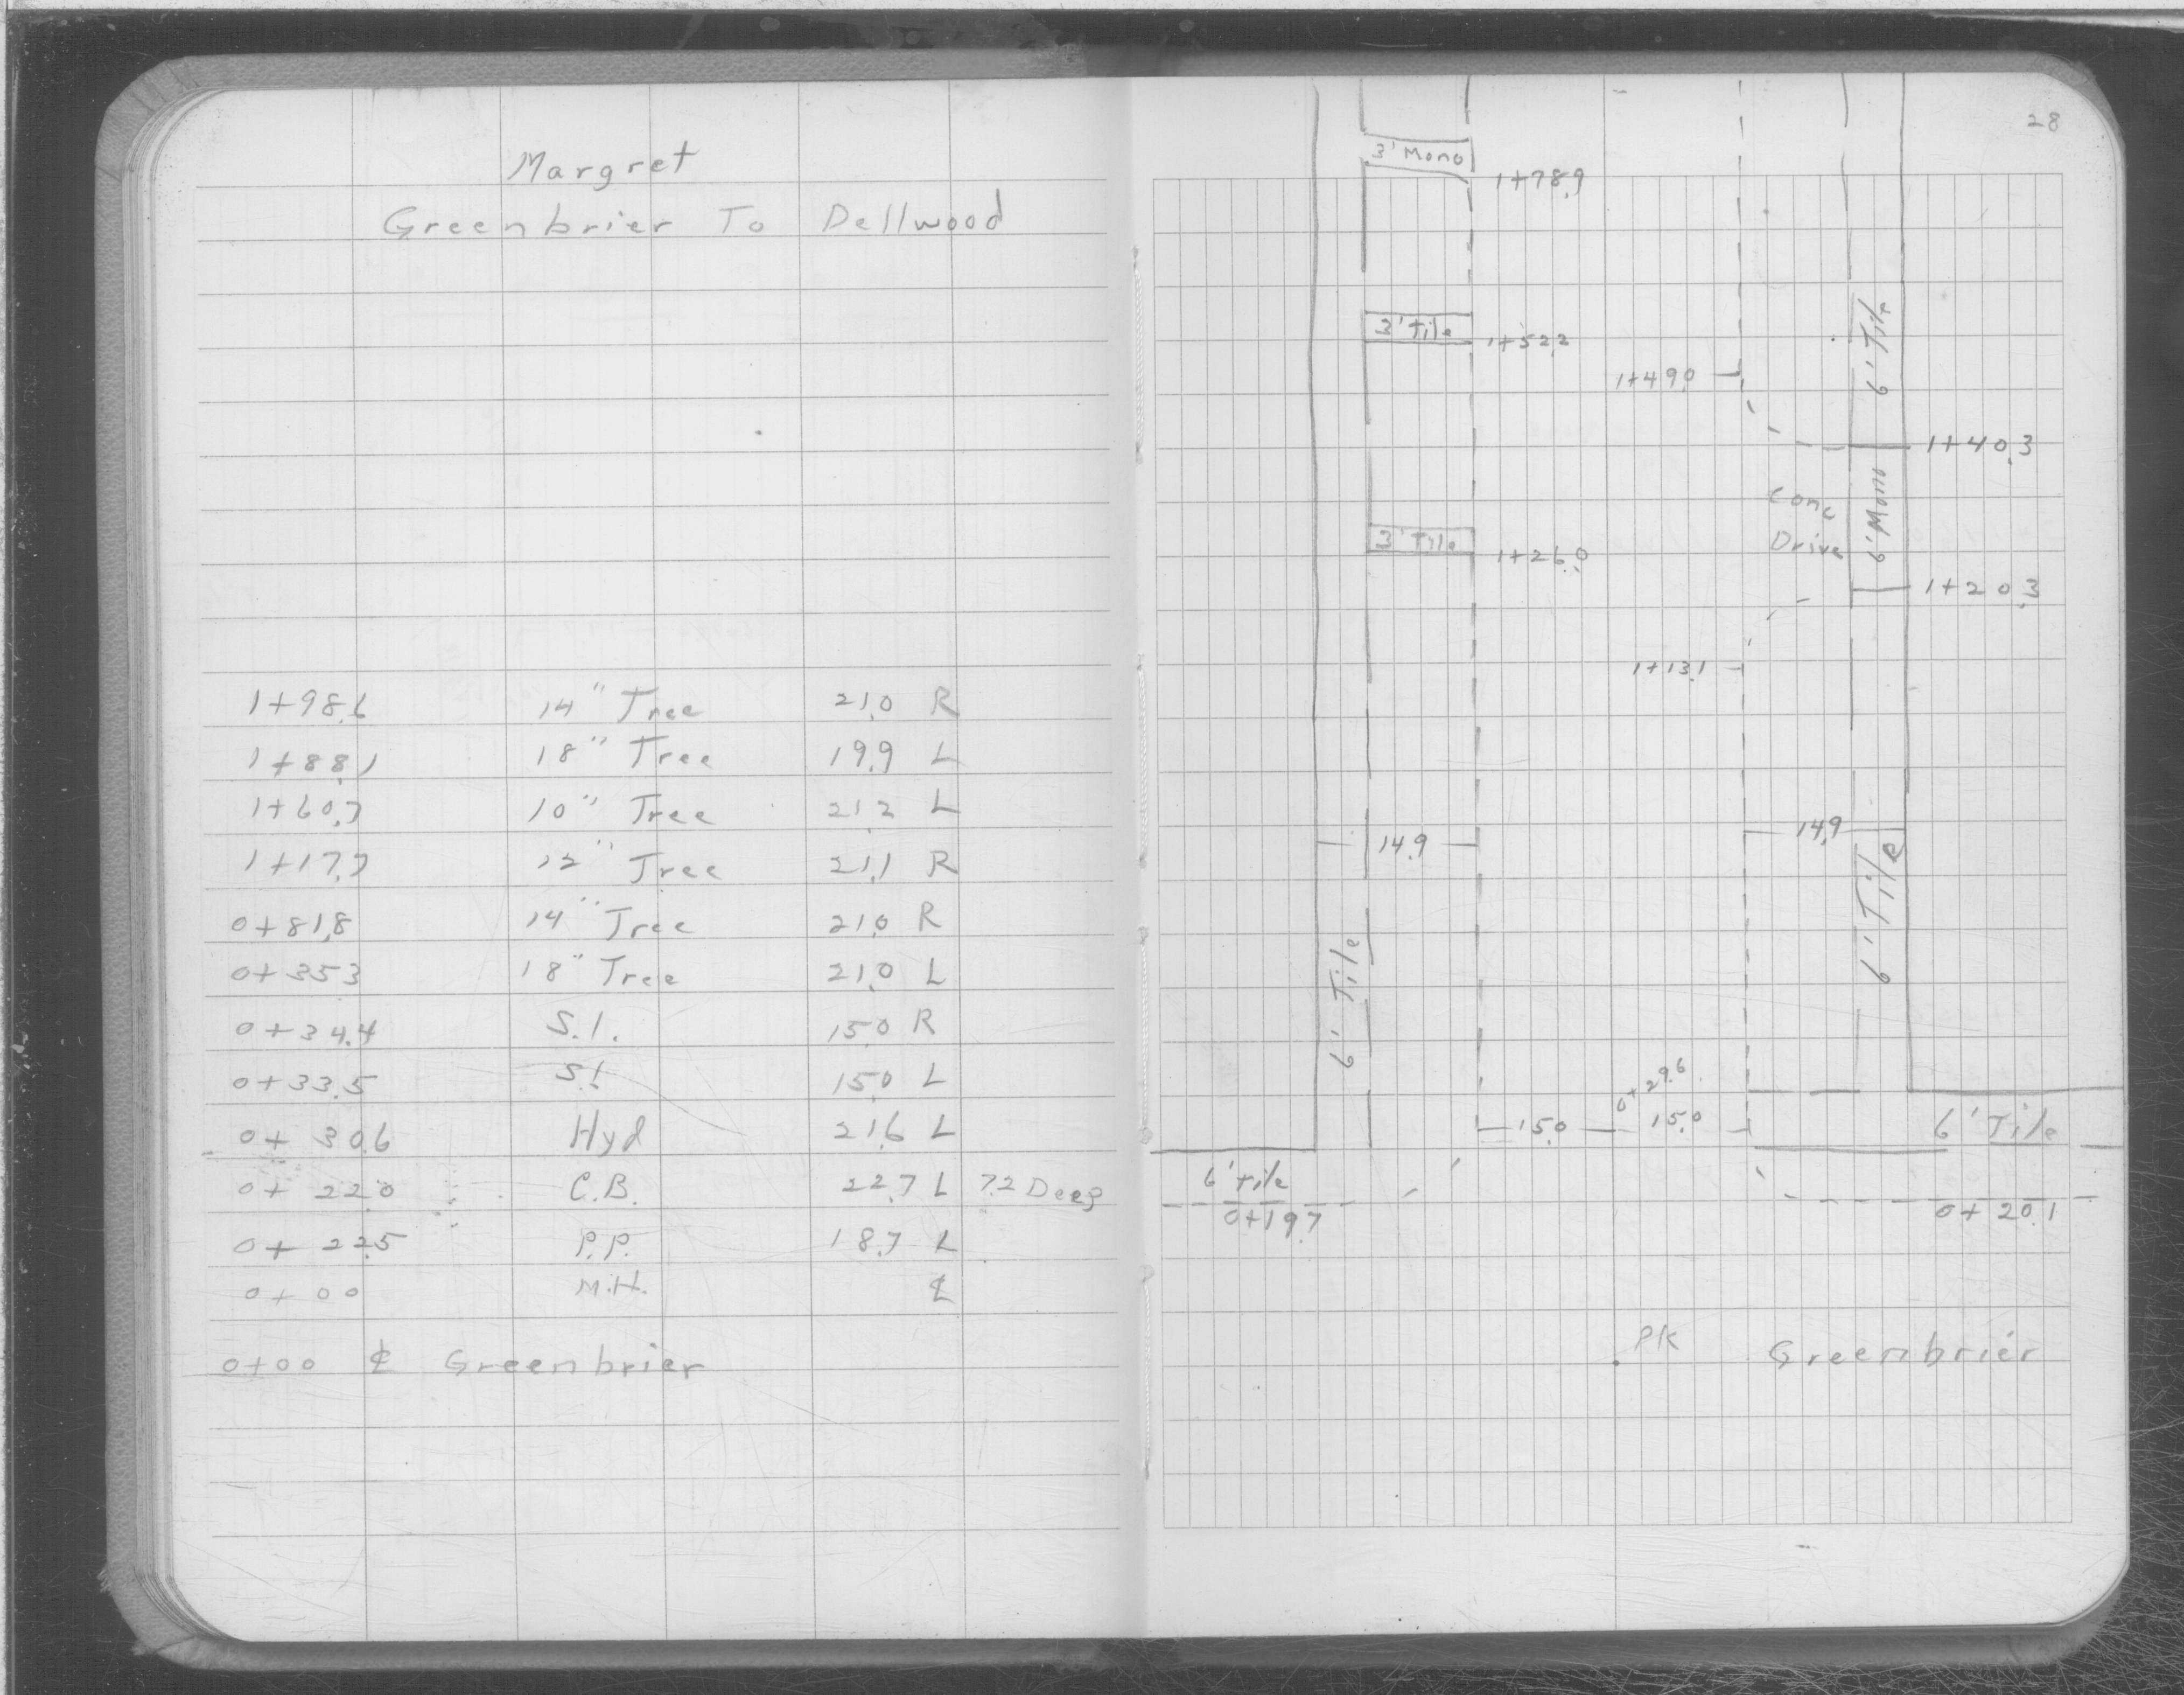 Margret
Greenbrier To Dellwood
1+98.6 14" Tree 21.0 R
1+88.1 18" Tree 19.9 L
1+60.7 10" Tree 21.2 L
1+17.7 12" Tree 21.1 R
0+81.8 14" Tree 21.0 R
0+35.3 18" Tree 21.0 L
0+34.4 S.I. 15.0 R
0+33.5 S.I. 15.0 L
0+30.6 Hyd 21.6 L
0+22.0 C.B. 22.7 L 7.2 Deep
0+22.5 P.P. 18.7 L
0+00 M.H. ℄
0+00 ℄ Greenbrier
28
3' Mono
1+78.9
3' Tile 1+52.2
1+49.0
6' Tile
1+40.3
Conc
Drive
6' Mono
3' Tile 1+26.0
1+20.3
1+13.1
14.9 14.9
6' Tile
6' Tile
0+29.6
15.0 15.0
6' Tile
6' Tile
0+19.7
0+20.1
PK Greenbrier